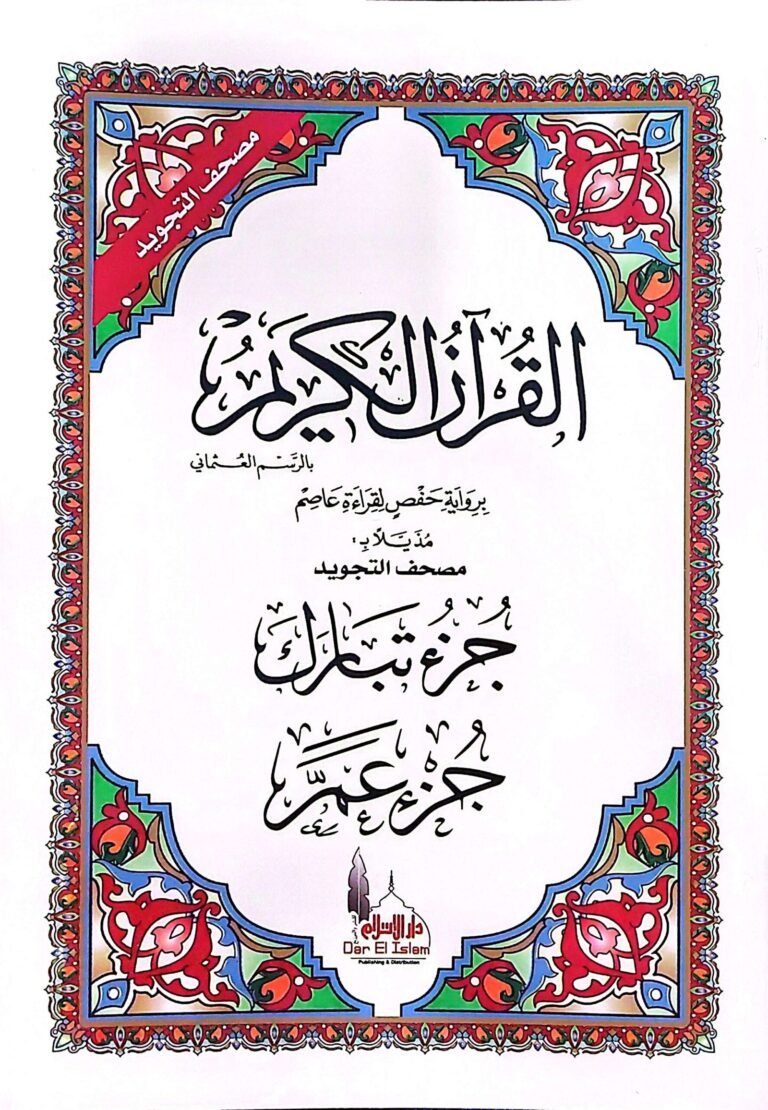 مصحف التجويد
القُرآنُ الكَرِيمُ
بالرَّسْمِ العُثماني
بِرِوَايَةِ حَفْصٍ لِقِرَاءَةِ عَاصِمْ
مُذَيَّلاً بِ :
مصحف التجويد
جُزءُ تَبَارَكَ
جُزءُ عَمَّ
دار الإسلام
Dar El Islam
Publishing & Distribution